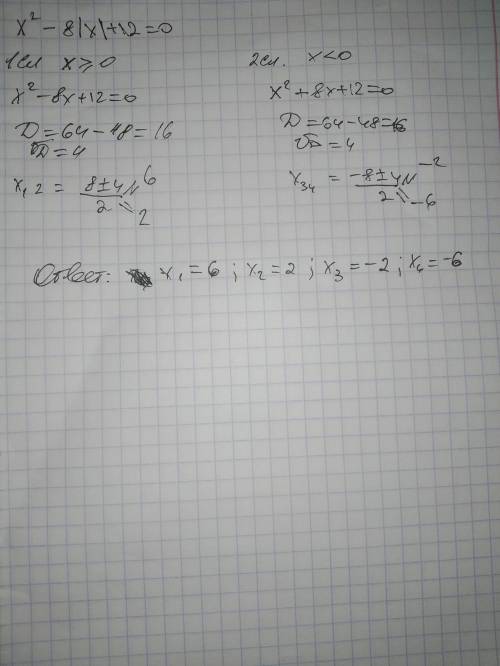 x² - 8|x| + 12 = 0
1сл x ≥ 0
x² - 8x + 12 = 0
D = 64 - 48 = 16
√D = 4
x₁ ₂ = (8 ± 4)/2
6
= 2
2сл. x < 0
x² + 8x + 12 = 0
D = 64 - 48 = 16
√D = 4
x₃₄ = (-8 ± 4)/2
-2
= -6
Ответ: x₁ = 6 ; x₂ = 2 ; x₃ = -2 ; x₄ = -6